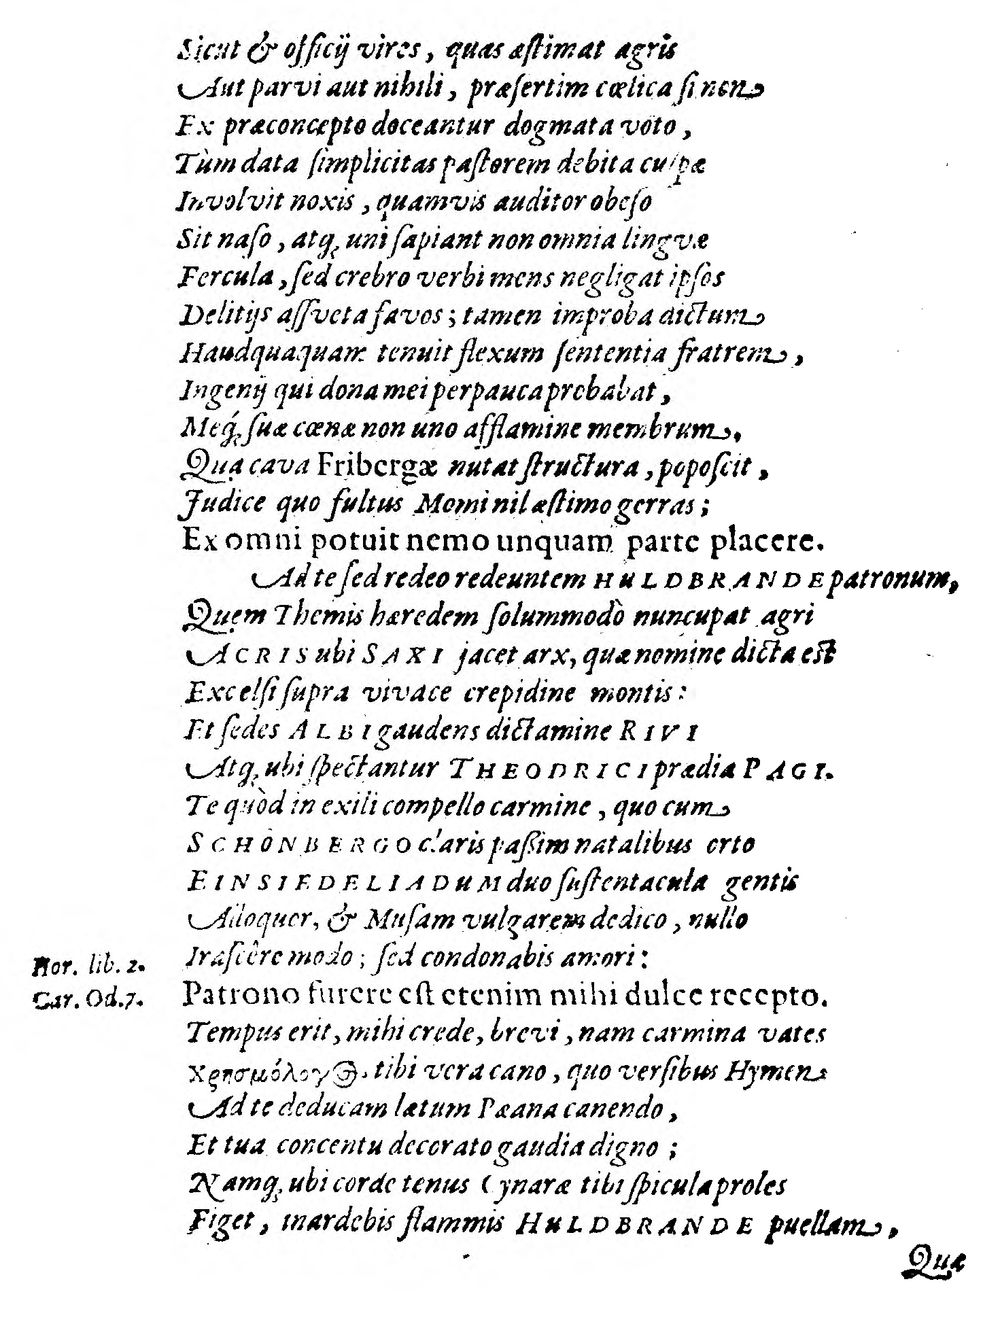 Sicut & officij vires, quas æstimat agris
Aut parvi aut nihili, præsertim cœlica si non
Ex præconcepto doceantur dogmata voto,
Tùm data simplicitas pastorem debita culpæ
Involvit noxis, quamvis auditor obeso
Sit naso, atq; uni sapiant non omnia lingvæ
Fercula, sed crebro verbi mens negligat ipsos
Delitijs assveta favos; tamen improba dictum
Haudquaquam tenuit flexum sententia fratrem,
Ingenij qui dona mei perpauca probabat,
Meq́; suæ cœnæ non uno afflamine membrum,
Quà cava Fribergæ nutat structura, poposcit,
Judice quo fultus Momi nil æstimo gerras;
Ex omni potuit nemo unquam parte placere.
Ad te sed redeo redeuntem HULDBRANDE patronum,
Quem Themis hæredem solummodò nuncupat agri
ACRIS ubi SAXI jacet arx, quæ nomine dicta est
Excelsi supra vivace crepidine montis:
Et sedes ALBI gaudens dictamine RIVI
Atq; ubi spectantur THEODRICI prædia PAGI.
Te quòd in exili compello carmine, quo cum
SCHÖNBERGO claris passim natalibus orto
EINSIEDELIADUM duo sustentacula gentis
Alloquor, & Musam vulgarem dedico, nullo
Irascêre modo; sed condonabis amori:
Hor. lib. 2.
Car. Od. 7.
Patrono furere est etenim mihi dulce recepto.
Tempus erit, mihi crede, brevi, nam carmina vates
χρησμόλογος tibi vera cano, quo versibus Hymen
Ad te deducam lætum Pæana canendo,
Et tua concentu decorato gaudia digno;
Namq; ubi corde tenus Cynaræ tibi spicula proles
Figet, inardebis flammis HULDBRANDE puellam,
Quæ